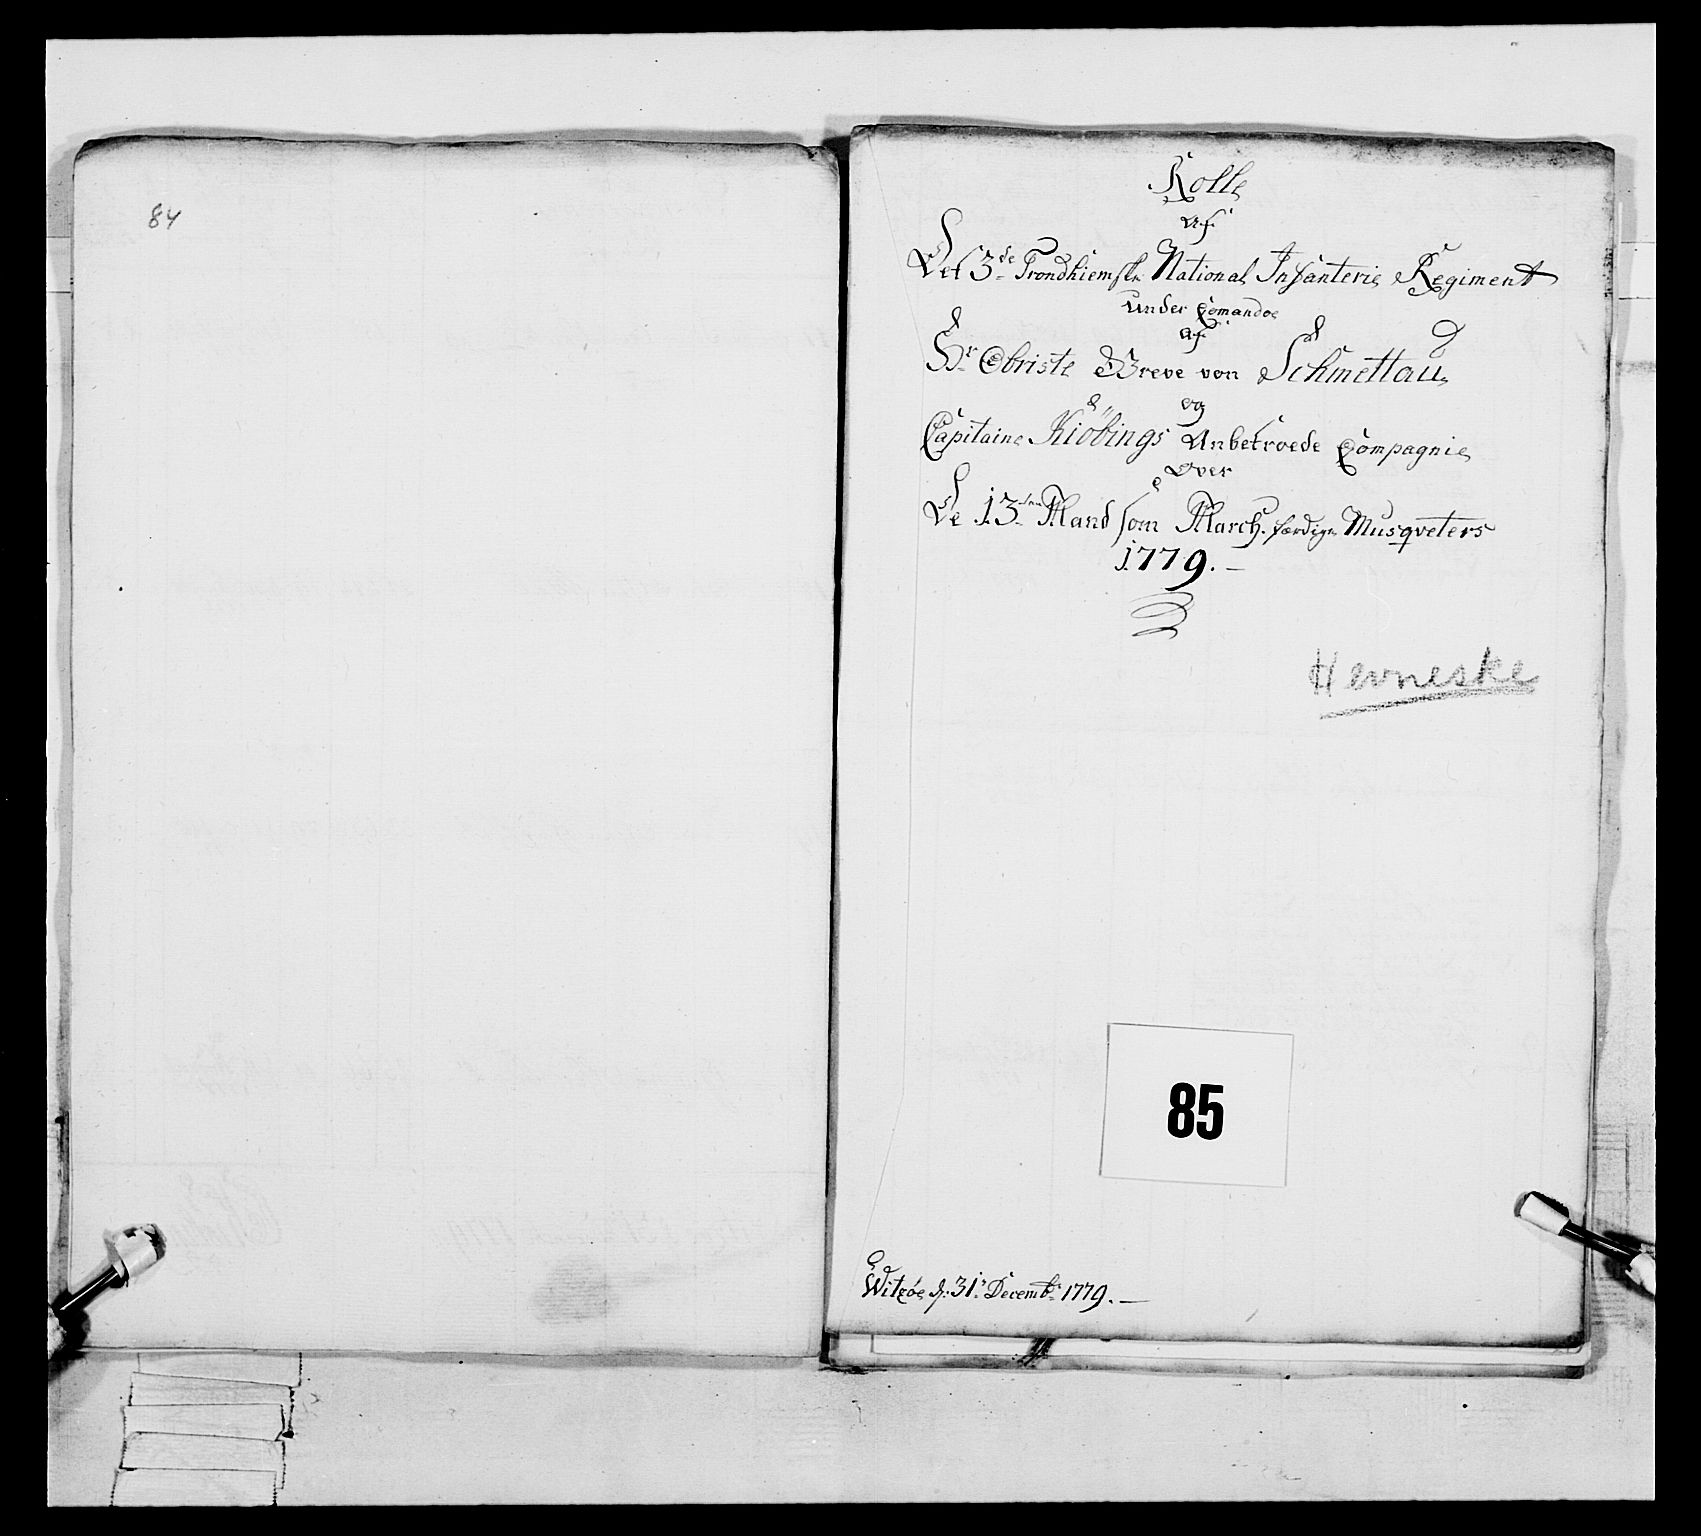 84
Rolle
af
Det 3de Trondhiemske National Infanterie Regiment
Under Comando
af
Hr Obriste Greve von Schmettau
og
Capitaine Kiöbings Anbetroede Compagnie
Over
De 13ten Mand som March. færdige Musqveters
1779.
Hevneske
85
Witzöe d. 31t Decembr 1779.